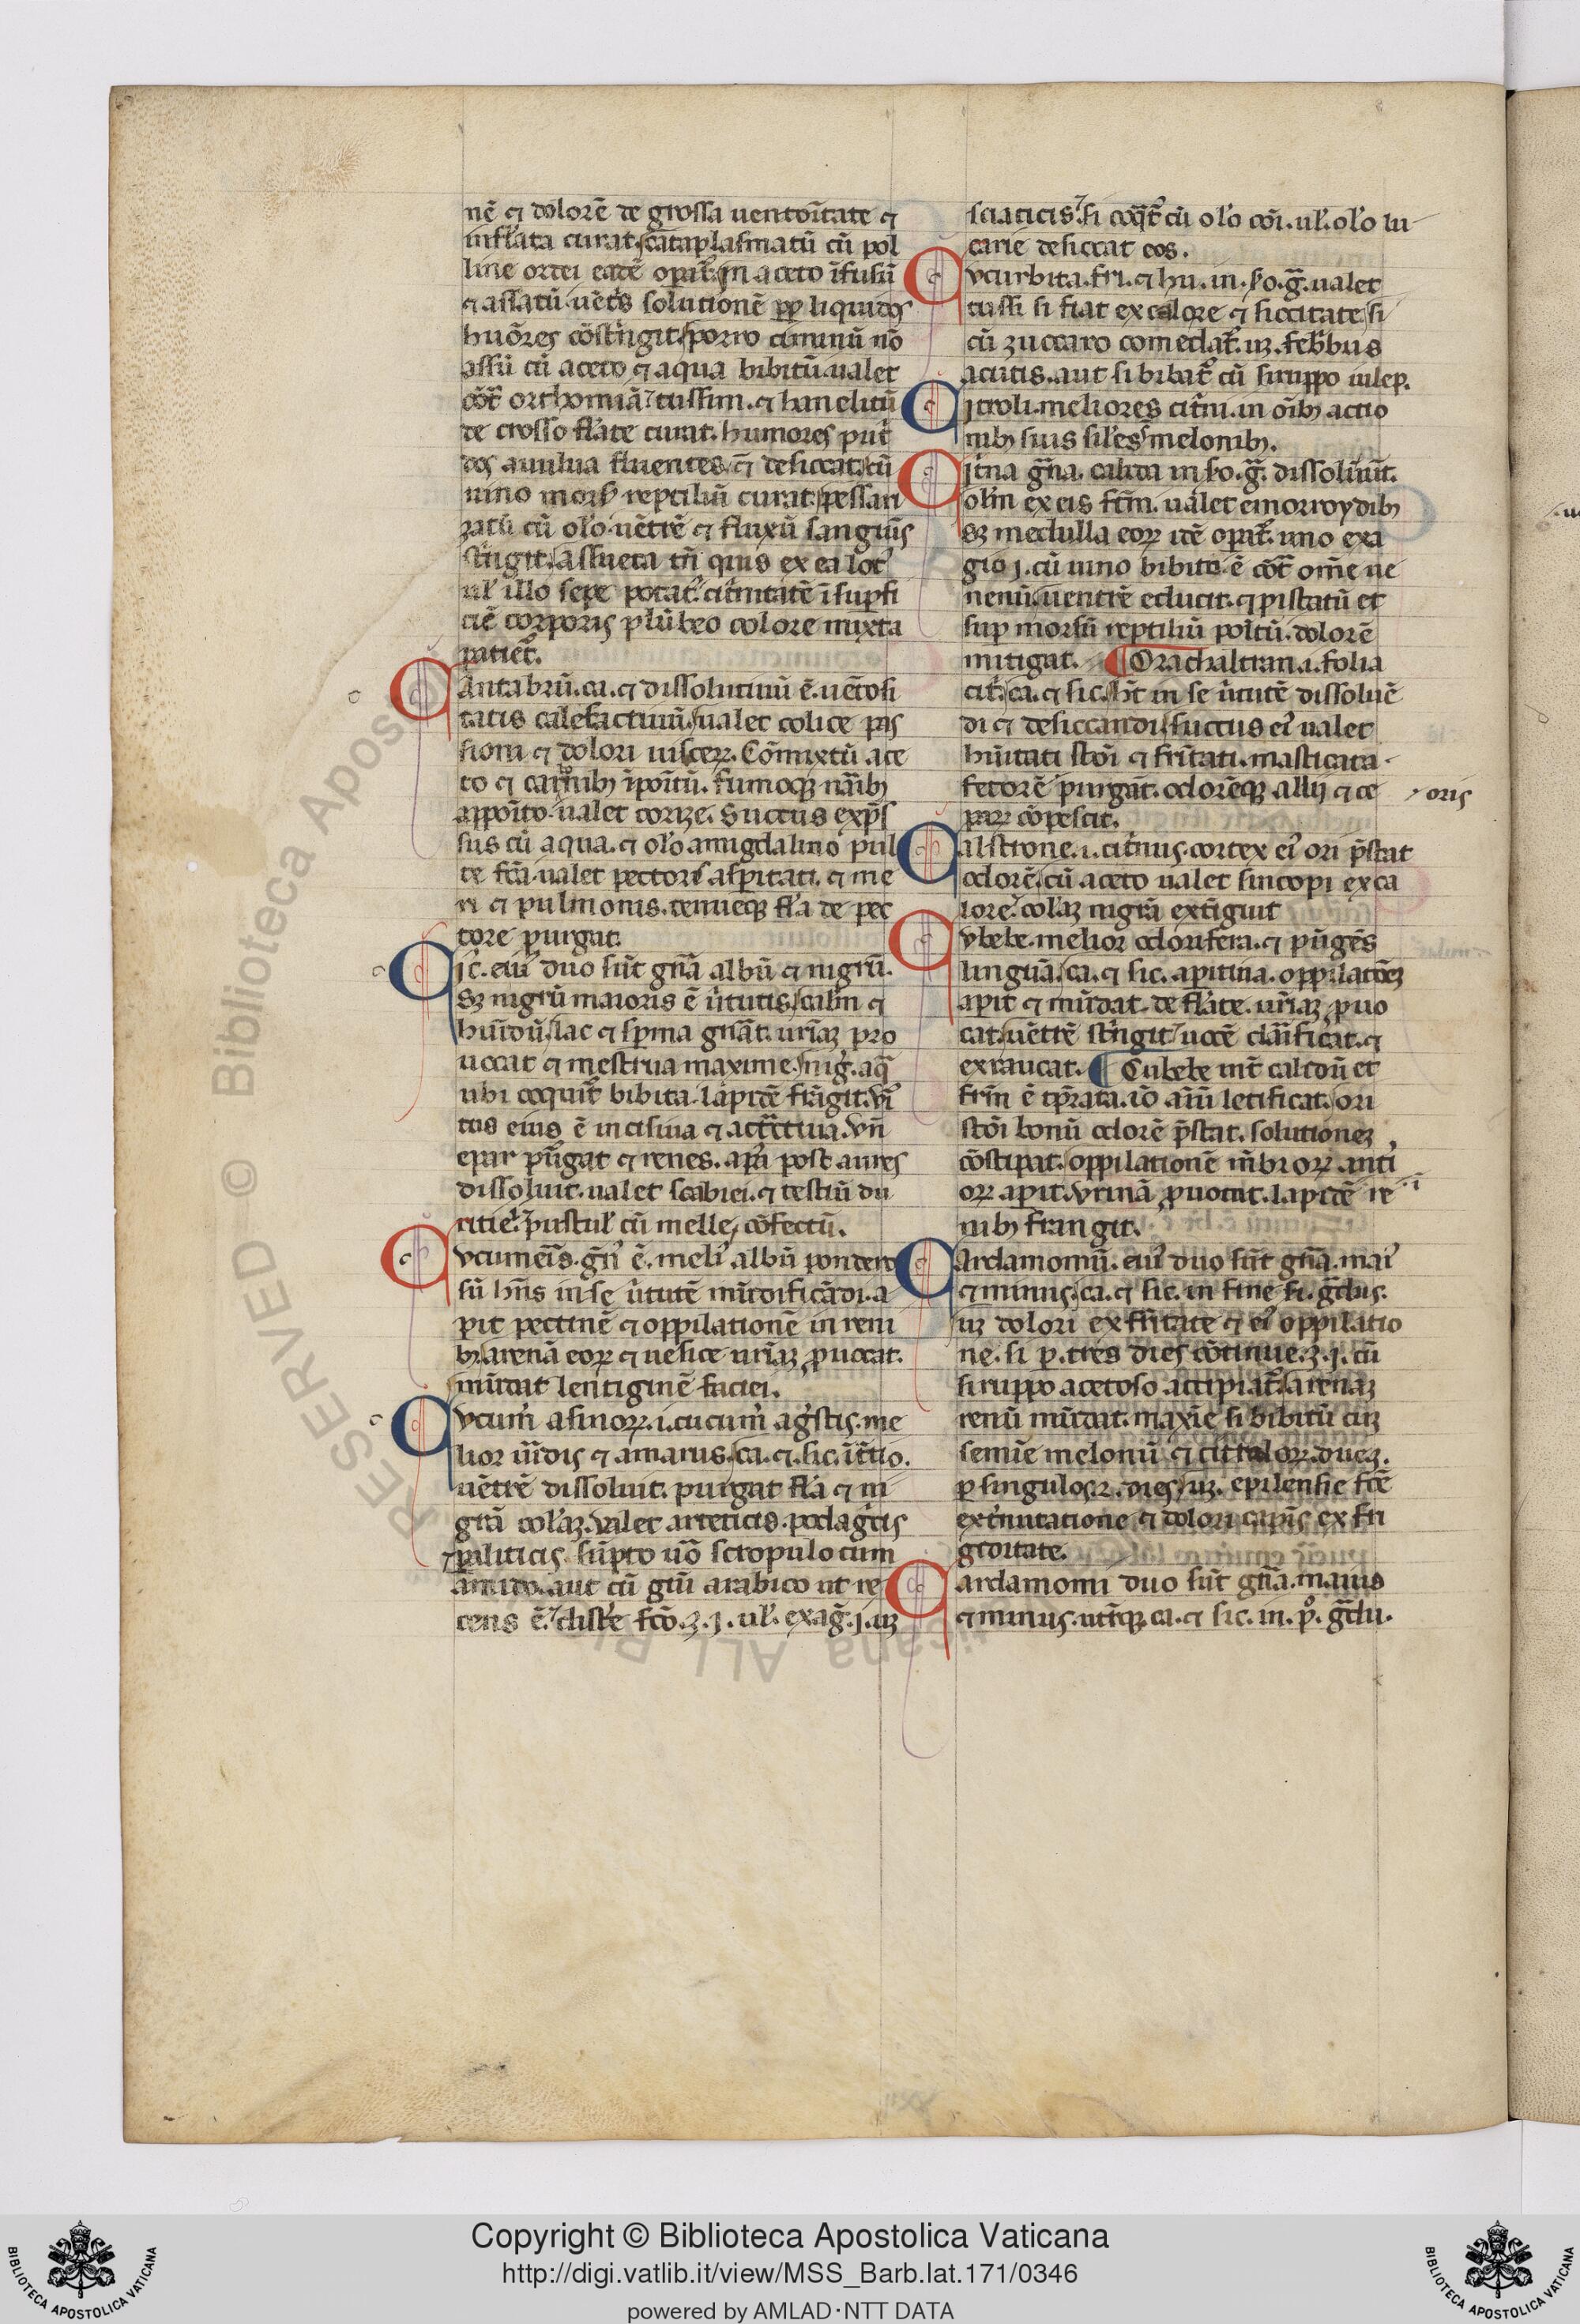 nē ⁊ dolorē de grossa uentoītate ⁊
inflata curat. cataplasmatū cū pol
line ordei eadē opat᷑. in aceto īfusū
⁊ assatū uēt͛s solutionē pp̄ liquidos
huōres cōst͛ngit. porro ciminū nō
assū cū aceto ⁊ aqua bibitū ualet
cōt͛ orthomiā ⁊ tussim. ⁊ hanelitū
de grosso flāte curat. humores put͛
dos auulua fluentes. desiccat. cū
uino morsꝰ reptiliū curat. pessari
zatū cū olˀo uētrē ⁊ fluxū sanguīs
st͛ngit. assueta tn̄ quis ex ea lot᷑
ulˀ illo sepe potat᷑. cit͛nitatē ī suꝑfi
ciē corporis plūbeo colore mixta
patiet᷑.
Cantabrū. ca. ⁊ dissolutiuū ē. uētosi
tatis calefactiuū. ualet colice pas
sioni ⁊ dolori uisceꝝ. Cōmixtū ace
to ⁊ carbōibꝫ īpoītū. fumoqꝫ narībꝫ
appoīto ualet corize. Succus expˀs
sus cū aqua. ⁊ olˀo amigdalino pul
te fcā ualet pectorˀ aspitati. ⁊ me
ri ⁊ pulmonis. tenueqꝫ flˀa de pec
tore purgat.
Cic͛. eiuˀ duo sūt gn̄a albū ⁊ nigrū.
Sꝫ nigrū maioris ē u͛tutis. calˀm ⁊
huīdū. lac ⁊ sꝑma gnāt. urīaꝫ pro
uocat ⁊ mestrua maxime. nig͛. aqˀ
ubi coquit᷑ bibita lapidē frāgit. vi͛
tus eius ē incisiua ⁊ act͛ctiua. vn̄
epar pūgat ⁊ renes. apāˀ post aures
dissoluit. ualet scabiei. ⁊ testiū du
ritie᷑. pustulˀ cū melle cōfectū.
Cucumēīs. gn̄ˀ ē. meliˀ albū pondero
sū. hn̄s in se u͛tutē mūdificādi. a
pit pectinē ⁊ oppilationē in reni
bꝫ. arenā eoꝝ ⁊ uesice. urīaꝫ ꝓuocat.
mūdat lentiginē faciei.
Cucum͛ asinoꝝ. i. cucum͛ ag͛stis. me
lior uīrdis ⁊ amarus. ca. ⁊. sic. ī t͛tio.
uētrē dissoluit. purgat flˀa ⁊ ni
grā colˀaꝫ. Valet arteticis. podag͛cis
⁊ paliticis. sūpto uō scropulo cum
amido. aut cū gūi arabico ut re
cens ē. clist͛e fcō. ʒ. j. ulˀ. exag̃. j. uꝫ
sciaticis. si coqˀt᷑ cū olˀo cōi. ulˀ. olˀo lu
carie desiccat eos.
Cucurbita. fri. ⁊ hu. in. ẜo. g̃. ualet
tussi si fiat ex calore ⁊ siccitate. si
cū zuccaro comedat᷑. uꝫ. febˀbus
acutis. aut si bibat᷑ cū siruppo iulep.
Citroli. meliores cit͛ni. in oībꝫ actio
nibꝫ suis silˀes melonibꝫ.
Citˀna gˀna. calida in ẜo. g̃. dissoluūt.
olˀm ex eis fcm̄. ualet emorroydibꝫ
Sꝫ medulla eoꝝ idē opat᷑. uno exa
gio j. cū uino bibito ē cōt͛ omē ue
nenū. uentrē educit. ⁊ pistatū et
suꝑ morsū reptiliū poītū. dolorē
mitigat. ¶ Orachaltran. i. folia
cit͛. ca. ⁊ sic. hn̄t in se u͛tutē dissoluē
di ⁊ desiccandi. succus eiˀ ualet
huītati stōi ⁊ fri͛tati. masticata
fetorē purgāt. odorēqꝫ allij ⁊ ce
oris
paꝝ cōpescit.
Calstione. i. cit͛nus. cortex eiˀ ori pˀstat
odorē. cū aceto ualet sincopi ex ca
lore. colˀaꝫ nigrā extīguit
Cubebe. melior odorifera. ⁊ pūgēs
linguā. ca. ⁊ sic. apitiua. oppilatioēꝫ
apit ⁊ mūdat de flāte. urīaꝫ ꝓuo
cat. uētrē st͛ngit. uocē clarificat. ⁊
exraucat. ¶ Cubebe int͛ calidū et
fri͛m ē tꝑata. iō aīm letificat. ori
stōi bonū odorē pˀstat. solutionez
cōstipat. oppilationē mˀbroꝝ anti
oꝝ apit. Vrinā ꝓuocat. lapidē re
nibꝫ frangit.
Cardamomū. eiuˀ duo sūt gn̄a. maiˀ
⁊ minus. ca. ⁊ sic. in fine fi. g̃dus.
uꝫ dolori ex fri͛tate ⁊ eiˀ oppilatio
ne. si p. tres dies cōtinue. ʒ. j. cū
siruppo acetoso accipiat᷑. arenaꝫ
renū mūdat. maxīe si bibitū cuꝫ
semīe melonū ⁊ citroloꝝ. dueꝫ.
ꝑ singulos. dies. uꝫ. epilensie fcē
ext͛nutatione ⁊ dolori capīs ex fri
giditate.
Cardamomi duo sūt gn̄a. maius
⁊ minus. utˀqꝫ. ca. ⁊ sic. in. pº. g̃du.
RESERVED © Biblioteca Apostolica Vaticana ALL RIG
Copyright © Biblioteca Apostolica Vaticana
http://digi.vatlib.it/view/MSS_Barb.lat.171/0346
powered by AMLAD·NTT DATA
BIBLIOTECA APOSTOLICA VATICANA
BIBLIOTECA APOSTOLICA VATICANA